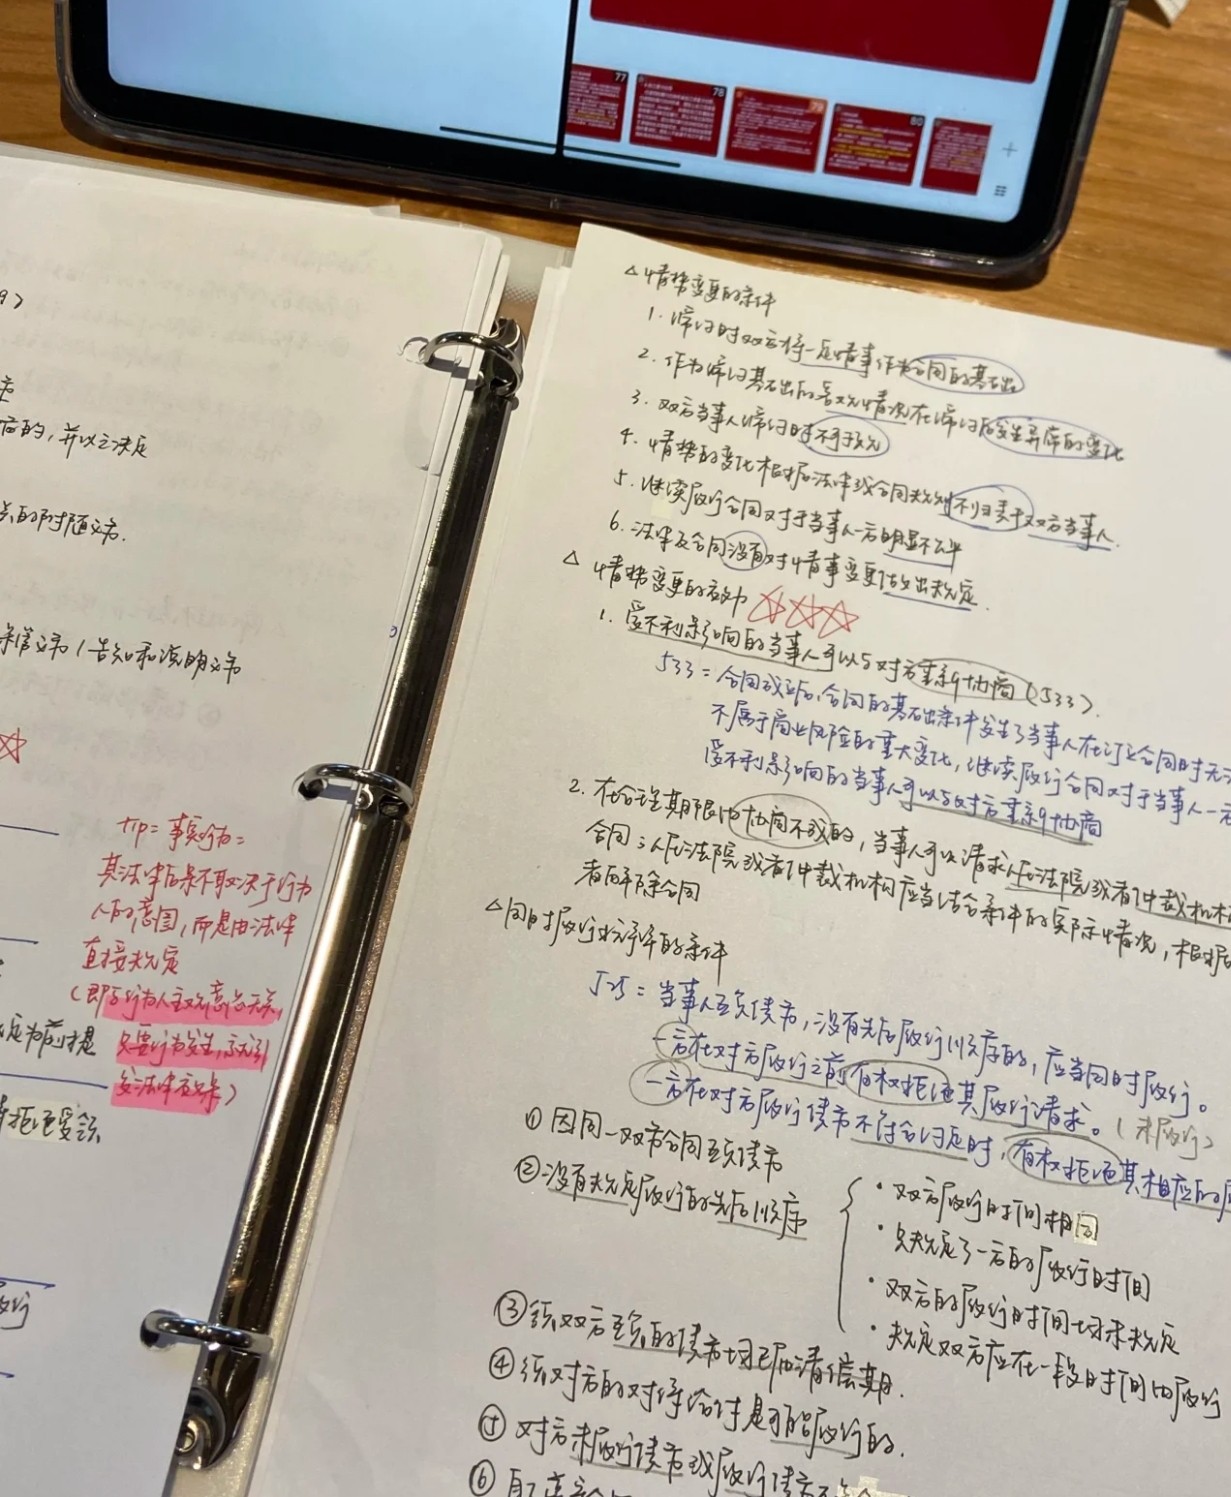 77
78
79
80
务
后的,并以之决定
的附随义务.
保管义务(告知和说明义务
tip=事实行为=
其法律后果不取决于行为
人的意图,而是由法律
直接规定
(即与行为人主观意志无关,
只要行为发生,就引
发法律效果)
定为前提
拒绝受领
△情势变更的条件
1.缔约时双方将一定情事作为合同的基础
2.作为缔约基础的客观情况在缔约后发生异常的变化
3.双方当事人缔约时不可预见
4.情势的变化根据法律或合同规则不归责于双方当事人.
5.继续履行合同对于当事人一方明显不公平
6.法律及合同没有对情事变更做出规定.
△情势变更的效力
1.受不利影响的当事人可以与对方重新协商(533).
533=合同成立后,合同的基础条件发生了当事人在订立合同时无法
不属于商业风险的重大变化,继续履行合同对于当事人一方
受不利影响的当事人可以与对方重新协商
2.在合理期限内协商不成的,当事人可以请求人民法院或者仲裁机构
合同;人民法院或者仲裁机构应当结合案件的实际情况,根据
者解除合同
△同时履行抗辩的条件
525=当事人互负债务,没有先后履行顺序的,应当同时履行。
一方在对方履行之前有权拒绝其履行请求。(未履行)
一方在对方履行债务不符合约定时,有权拒绝其相应的履
①因同一双务合同互负债务
②没有规定履行的先后顺序
·双方履行时间相同
·只规定了一方的履行时间
·双方的履行时间均未规定
·规定双方应在一段时间内履行
③须双方互负的债务均已届清偿期.
④须对方的对待给付是可能履行的.
⑤对方未履行债务或履行债务不符合
⑥